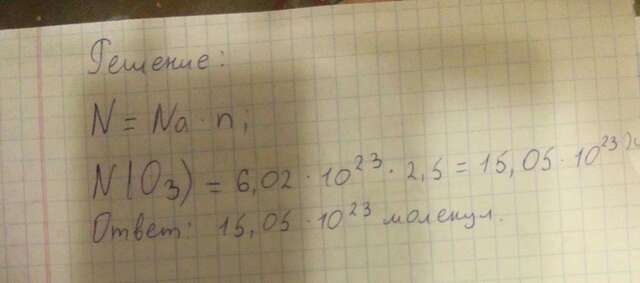 Решение:
N = Na · n;
N(O₃) = 6,02 · 10²³ · 2,5 = 15,05 · 10²³
Ответ: 15,05 · 10²³ молекул.